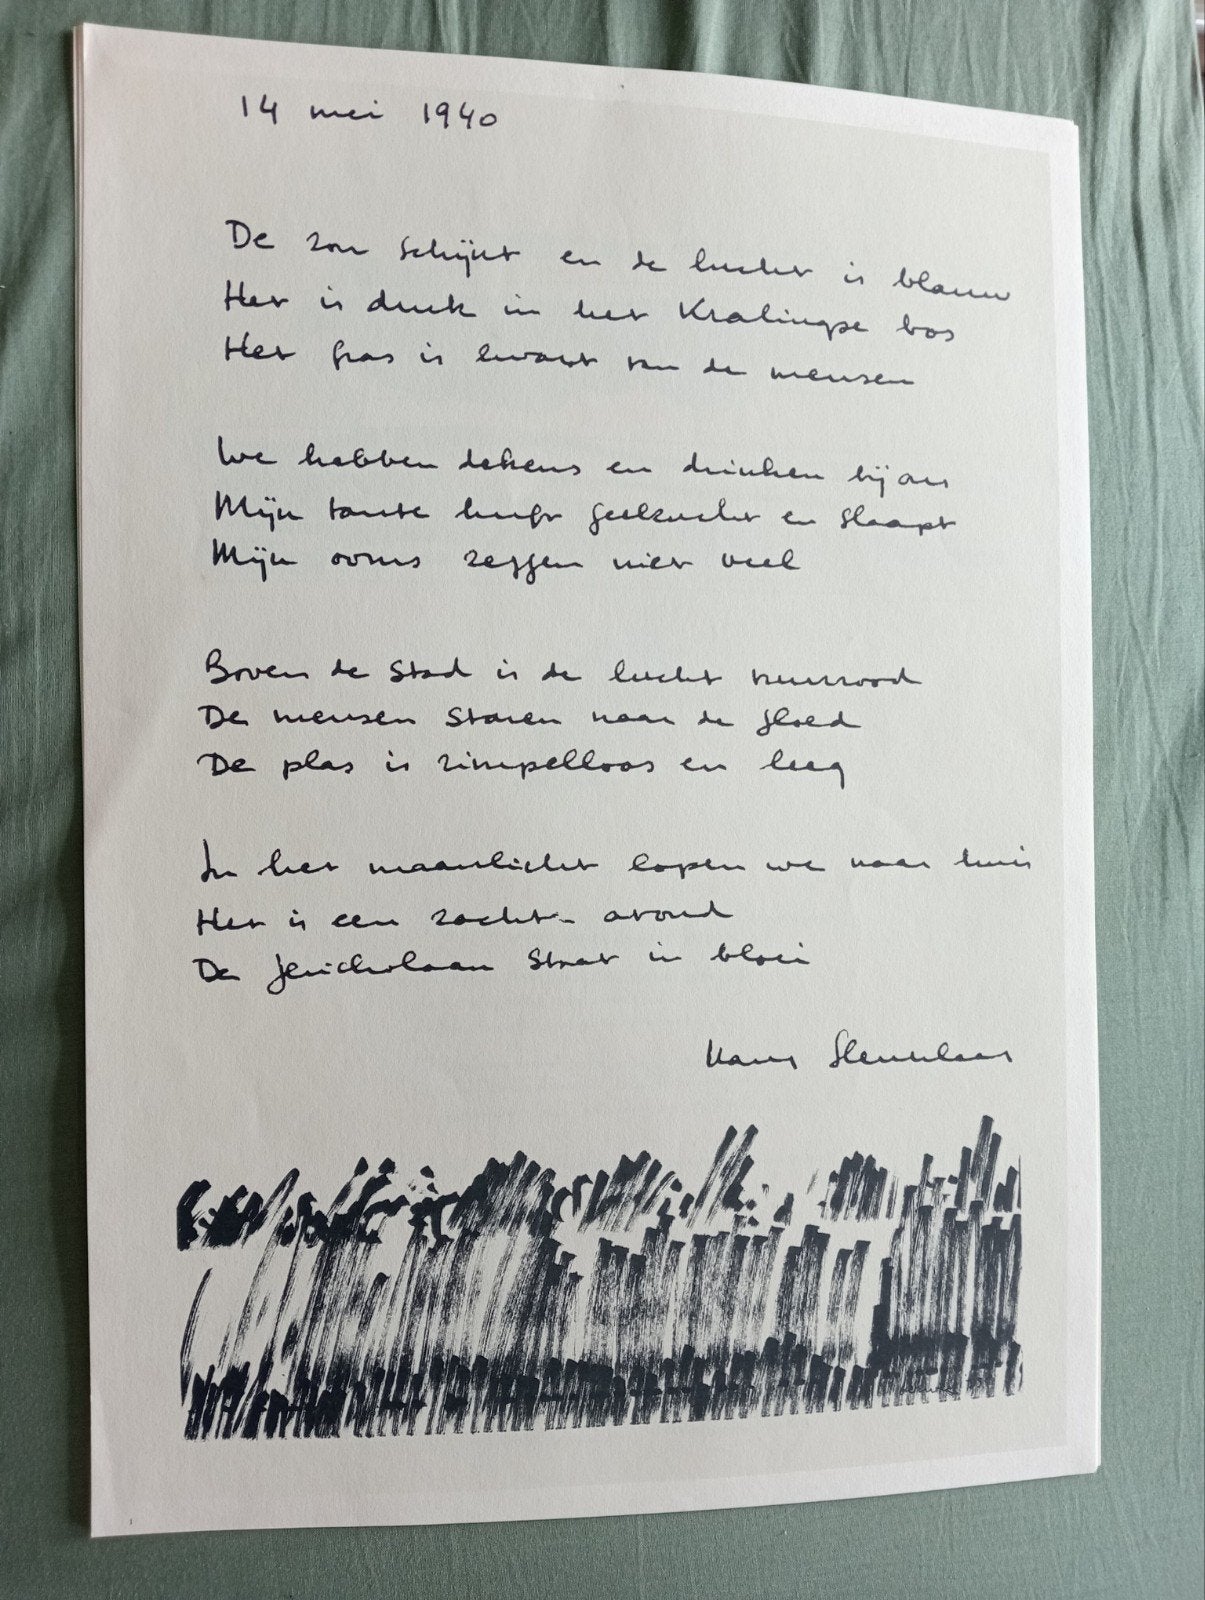 14 mei 1940
De zon schijnt en de lucht is blauw
Het is druk in het Kralingse bos
Het gras is zwart van de mensen
We hebben dekens en drinken bij ons
Mijn tante heeft gekucht en slaapt
Mijn ooms zeggen niet veel
Boven de stad is de lucht vuurrood
De mensen staren naar de gloed
De plas is rimpelloos en leeg
In het maanlicht lopen we naar huis
Het is een zachte avond
De Jericholaan staat in bloei
Hans Sleutelaar